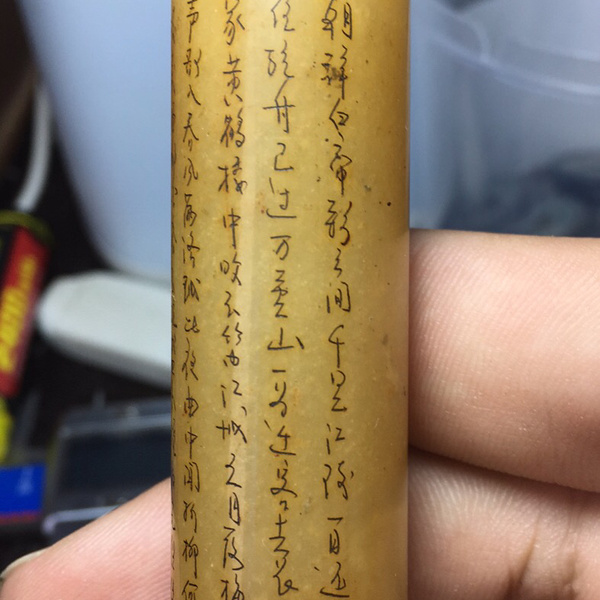 朝辞白帝彩云间千里江陵一日还
住轻舟已过万重山一为迁客去长
家黄鹤楼中吹玉笛江城五月落梅
声散入春风满洛城此夜曲中闻折柳何